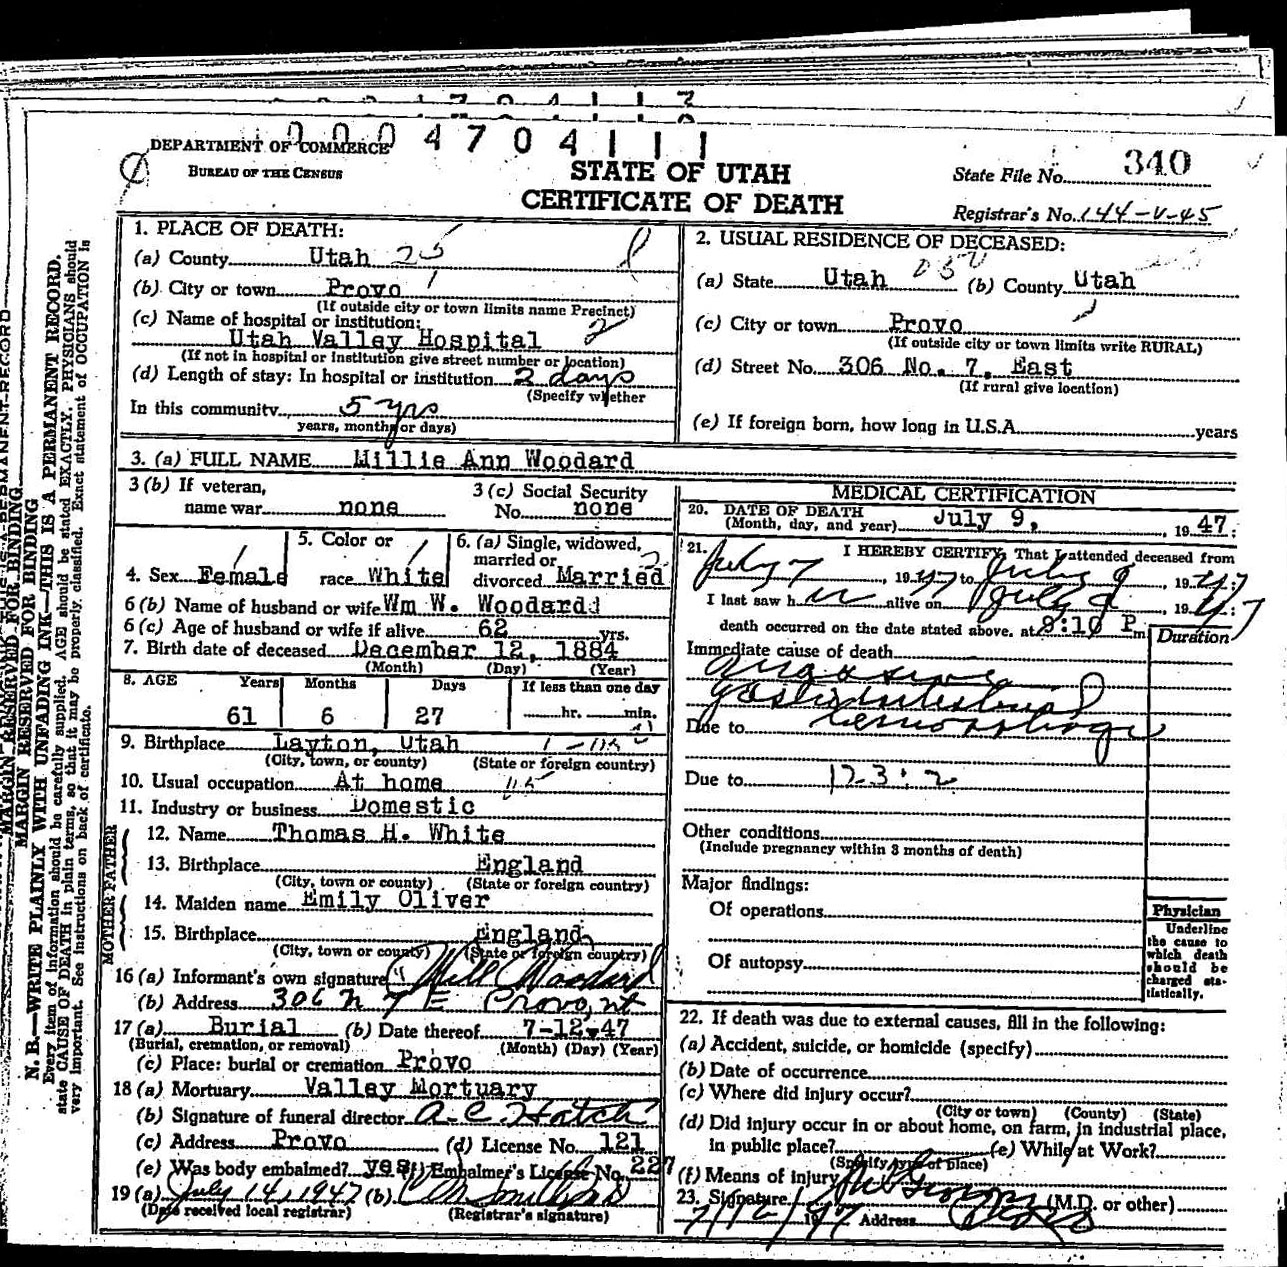 0004704111
DEPARTMENT OF COMMERCE
BUREAU OF THE CENSUS
STATE OF UTAH
CERTIFICATE OF DEATH
State File No. 340
Registrar's No. 144-V-45
1. PLACE OF DEATH:
(a) County Utah 25
(b) City or town Provo
(If outside city or town limits name Precinct)
(c) Name of hospital or institution:
Utah Valley Hospital 2
(If not in hospital or institution give street number or location)
(d) Length of stay: In hospital or institution 2 days
(Specify whether
In this community 5 yrs
years, months or days)
2. USUAL RESIDENCE OF DECEASED:
(a) State Utah (b) County Utah
(c) City or town Provo
(If outside city or town limits write RURAL)
(d) Street No. 306 No. 7, East
(If rural give location)
(e) If foreign born, how long in U.S.A. years
3. (a) FULL NAME Millie Ann Woodard
3 (b) If veteran,
name war none
3 (c) Social Security
No. none
4. Sex Female
5. Color or
race White
6. (a) Single, widowed,
married or
divorced Married
6 (b) Name of husband or wife Wm W. Woodard
6 (c) Age of husband or wife if alive 62 yrs.
7. Birth date of deceased December 12, 1884
(Month) (Day) (Year)
8. AGE Years Months Days If less than one day
61 6 27 hr. min.
9. Birthplace Layton, Utah
(City, town, or county) (State or foreign country)
10. Usual occupation At home
11. Industry or business Domestic
FATHER
12. Name Thomas H. White
13. Birthplace England
(City, town or county) (State or foreign country)
MOTHER
14. Maiden name Emily Oliver
15. Birthplace England
(City, town or county) (State or foreign country)
16 (a) Informant's own signature Will Woodard
(b) Address 306 N 7 E Provo, Ut
17 (a) Burial (b) Date thereof 7-12-47
(Burial, cremation, or removal) (Month) (Day) (Year)
(c) Place: burial or cremation Provo
18 (a) Mortuary Valley Mortuary
(b) Signature of funeral director A. C. Hatch
(c) Address Provo (d) License No. 121
(e) Was body embalmed? yes (f) Embalmer's License No. 227
19 (a) July 14, 1947 (b)
(Date received local registrar) (Registrar's signature)
MEDICAL CERTIFICATION
20. DATE OF DEATH
(Month, day, and year) July 9, 1947:
21. I HEREBY CERTIFY, That I attended deceased from
July 7, 1947 to July 9, 1947
I last saw her alive on July 9, 1947:
death occurred on the date stated above, at 8:10 P m
Duration
Immediate cause of death
gastrointestinal
Due to hemorrhage
Due to 123:2
Other conditions
(Include pregnancy within 3 months of death)
Major findings:
Of operations
Of autopsy
Physician
Underline
the cause to
which death
should be
charged sta-
tistically.
22. If death was due to external causes, fill in the following:
(a) Accident, suicide, or homicide (specify)
(b) Date of occurrence
(c) Where did injury occur?
(City or town) (County) (State)
(d) Did injury occur in or about home, on farm, in industrial place,
in public place? (e) While at Work?
(Specify type of place)
(f) Means of injury
23. Signature (M.D. or other)
7/12/47 Address Provo
MARGIN RESERVED FOR BINDING
N. B.—WRITE PLAINLY WITH UNFADING INK—THIS IS A PERMANENT RECORD.
Every item of information should be carefully supplied. AGE should be stated EXACTLY. PHYSICIANS should
state CAUSE OF DEATH in plain terms, so that it may be properly classified. Exact statement of OCCUPATION is
very important. See instructions on back of certificate.